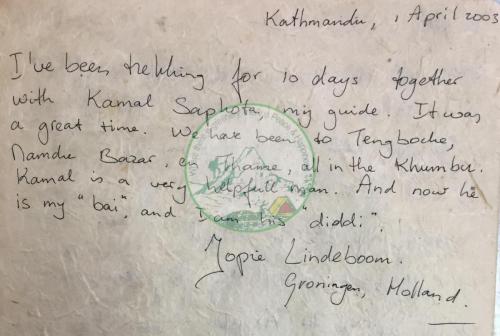 Kathmandu, 1 April 2003
I've been trekking for 10 days together
with Kamal Sapkota, my guide. It was
a great time. We have been to Tengboche,
Namche Bazar, en Thame, all in the Khumbu.
Kamal is a very helpfull man. And now he
is my "bai", and I am his "diddi".
Jopie Lindeboom.
Groningen, Holland.